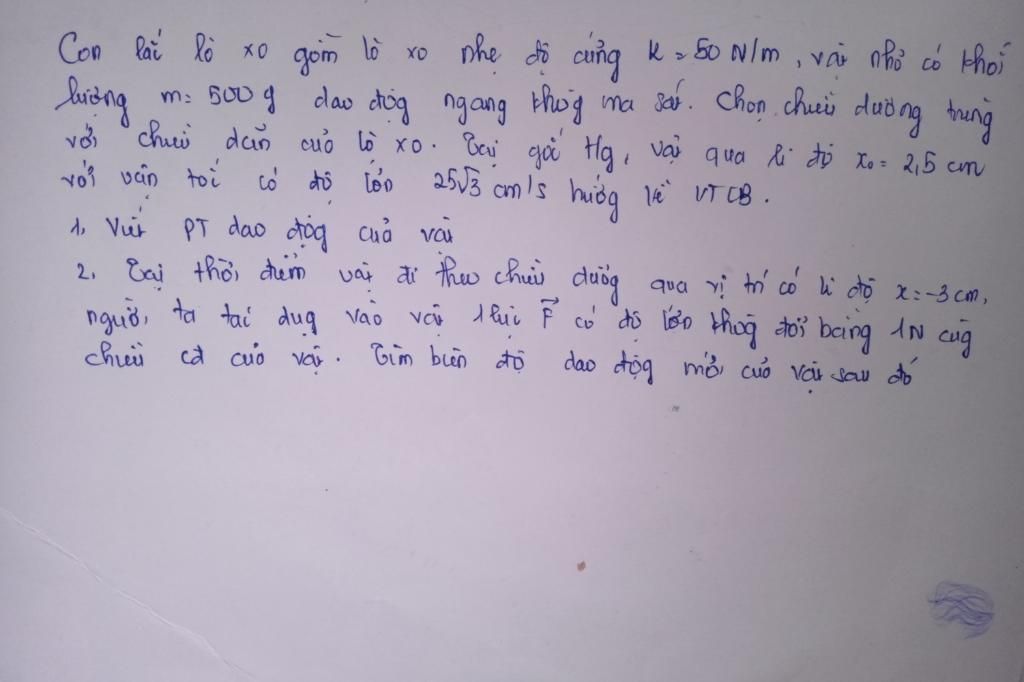 Con lắc lò xo gồm lò xo nhẹ độ cứng k = 50 N/m, vật nhỏ có khối
lượng m = 500 g dao động ngang không ma sát. Chọn chiều dương trùng
với chiều dãn của lò xo. Tại gốc tg, vật qua li độ x₀ = 2,5 cm
với vận tốc có độ lớn 25√3 cm/s hướg về VTCB.
1, Viết PT dao độg của vật
2, Tại thời điểm vật đi theo chiều dương qua vị trí có li độ x = -3 cm,
người ta tác dụg vào vật 1 lực F⃗ có độ lớn khôg đổi bằng 1N cùg
chiều cđ của vật. Tìm biên độ dao độg mới của vật sau đó